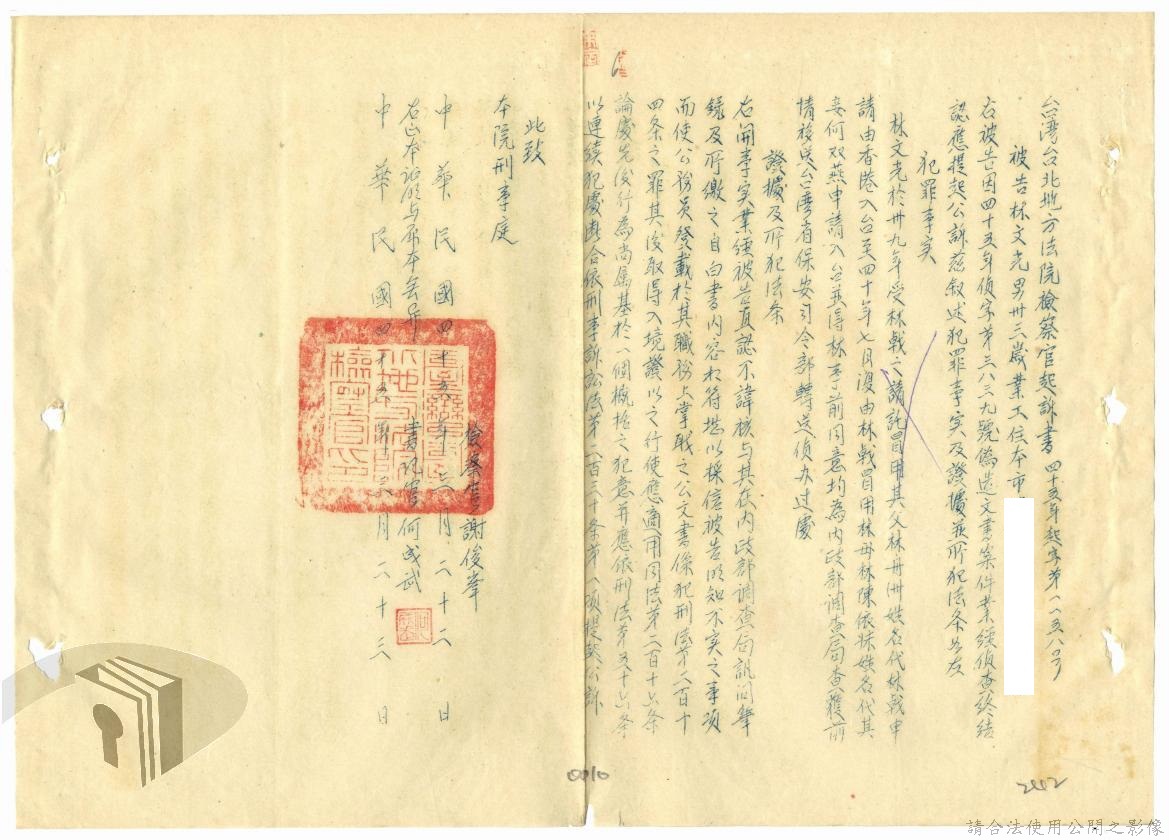 台湾台北地方法院檢察官起訴書 四十五年起字第一一五八号
被告林文光男卅三歲業工住本市
右被告因四十五年偵字第三八三九號偽造文書案件業經偵查終結
認應提起公訴茲叙述犯罪事实及證據並所犯法条如左
犯罪事实
林文光於卅九年受林戟之請託冒用其父林舟洲姓名代林戟申
請由香港入台至四十年七月復由林戟冒用林母林陳依妹姓名代其
妻何双燕申請入台並得林事前同意均為内政部調查局查獲前
情移送台湾省保安司令部轉送偵办过處
證據及所犯法条
右開事实業經被告直認不諱核与其在内政部調查局訊问筆
錄及所繳之自白書内容相符堪以採信被告明知不实之事項
而使公務員登載於其職務上掌职之公文書係犯刑法第二百十
四条之罪其後取得入境證以之行使應適用同法第二百十六条
論處先後行為尚属基於一個概括之犯意并應依刑法第五十六条
以連續犯處断合依刑事訴訟法第二百三十条第一項提起公訴
此致
本院刑事庭
中華民國四十五年十二月二十二日
檢察官謝俊峯
右正本证明与原本無異
書記官何成武
中華民國四十五年十二月二十三日
0010
2442
請合法使用公開之影像